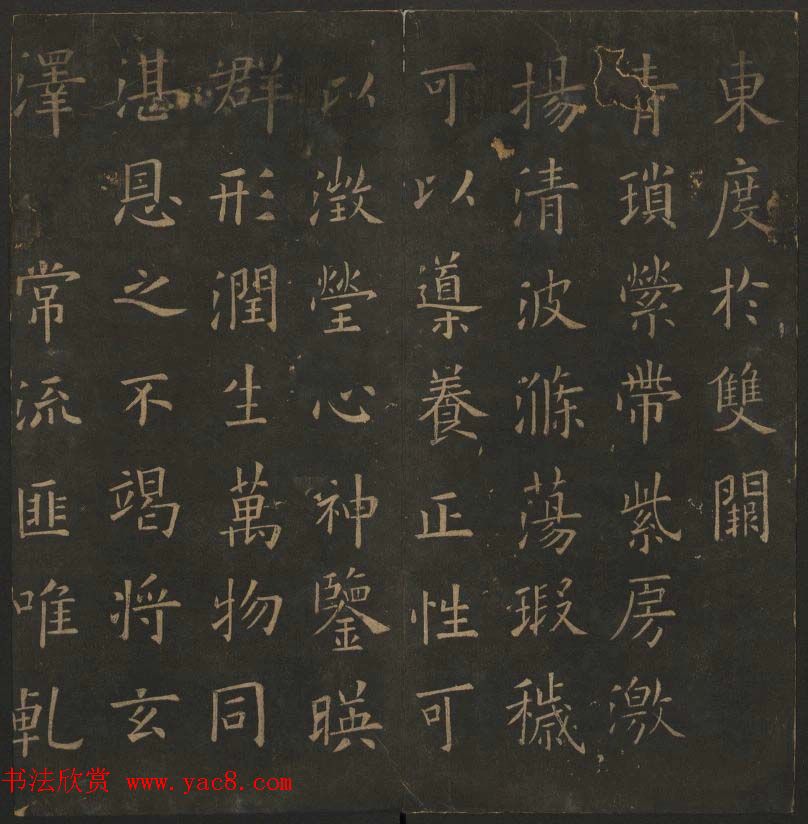 東度於雙闕
青瑣縈帶紫房激
揚清波滌蕩瑕穢
可以導養正性可
以澂瑩心神鑒暎
群形潤生萬物同
湛恩之不竭将玄
澤常流匪唯乹
书法欣赏 www.yac8.com